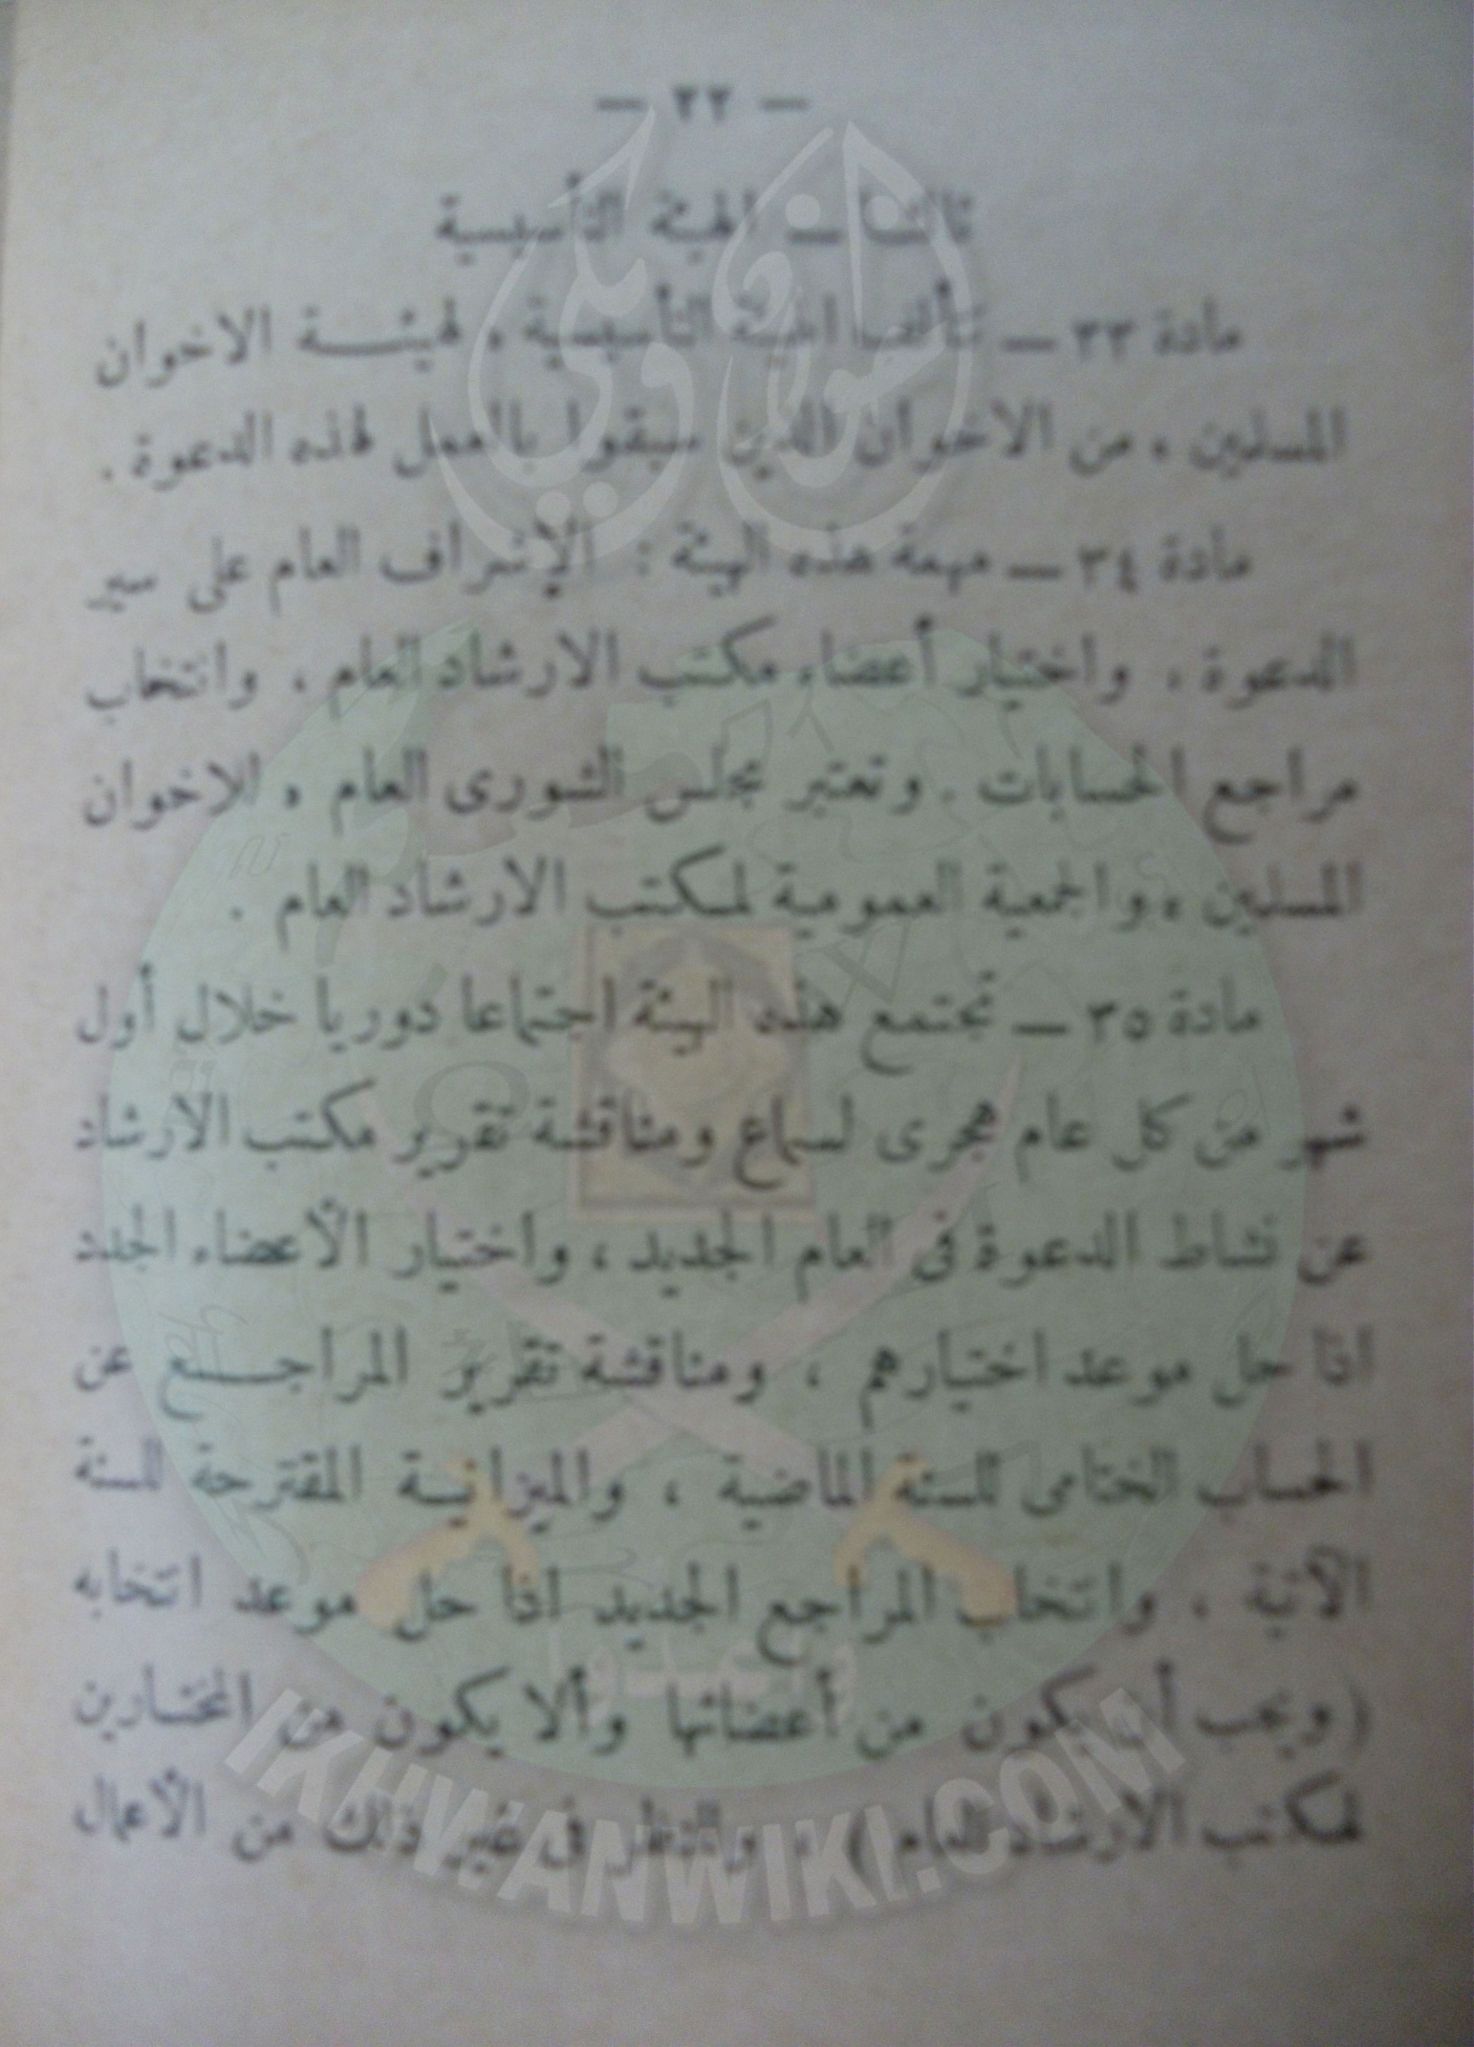 — ٢٢ —
ثالثا — الهيئة التأسيسية
مادة ٣٣ — تتألف الهيئة التأسيسية ، لهيئة الاخوان
المسلمين ، من الاخوان الذين سبقوا بالعمل لهذه الدعوة .
مادة ٣٤ — مهمة هذه الهيئة : الإشراف العام على سير
الدعوة ، واختيار أعضاء مكتب الارشاد العام ، وانتخاب
مراجع الحسابات . وتعتبر مجلس الشورى العام ، للاخوان
المسلمين ، والجمعية العمومية لمكتب الارشاد العام .
مادة ٣٥ — تجتمع هذه الهيئة اجتماعا دوريا خلال أول
شهر من كل عام هجرى لسماع ومناقشة تقرير مكتب الارشاد
عن نشاط الدعوة فى العام الجديد ، واختيار الأعضاء الجدد
اذا حل موعد اختيارهم ، ومناقشة تقرير المراجع عن
الحساب الختامى للسنة الماضية ، والميزانية المقترحة للسنة
الآتية ، وانتخاب المراجع الجديد اذا حل موعد انتخابه
( ويجب أن يكون من أعضائها وألا يكون من المختارين
لمكتب الارشاد العام ) ، والنظر فى غير ذلك من الأعمال
إخوان ويكي
وأعدوا
IKHWANWIKI.COM